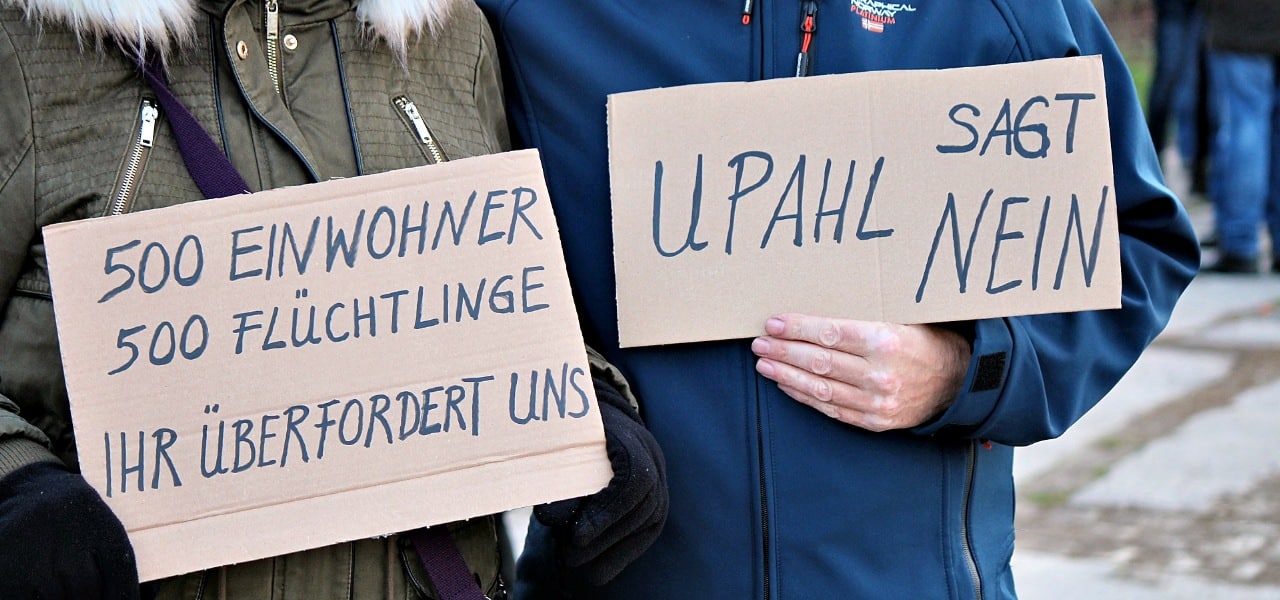 500 EINWOHNER
500 FLÜCHTLINGE
IHR ÜBERFORDERT UNS
UPAHL SAGT
NEIN
NORWAY
PLATINIUM